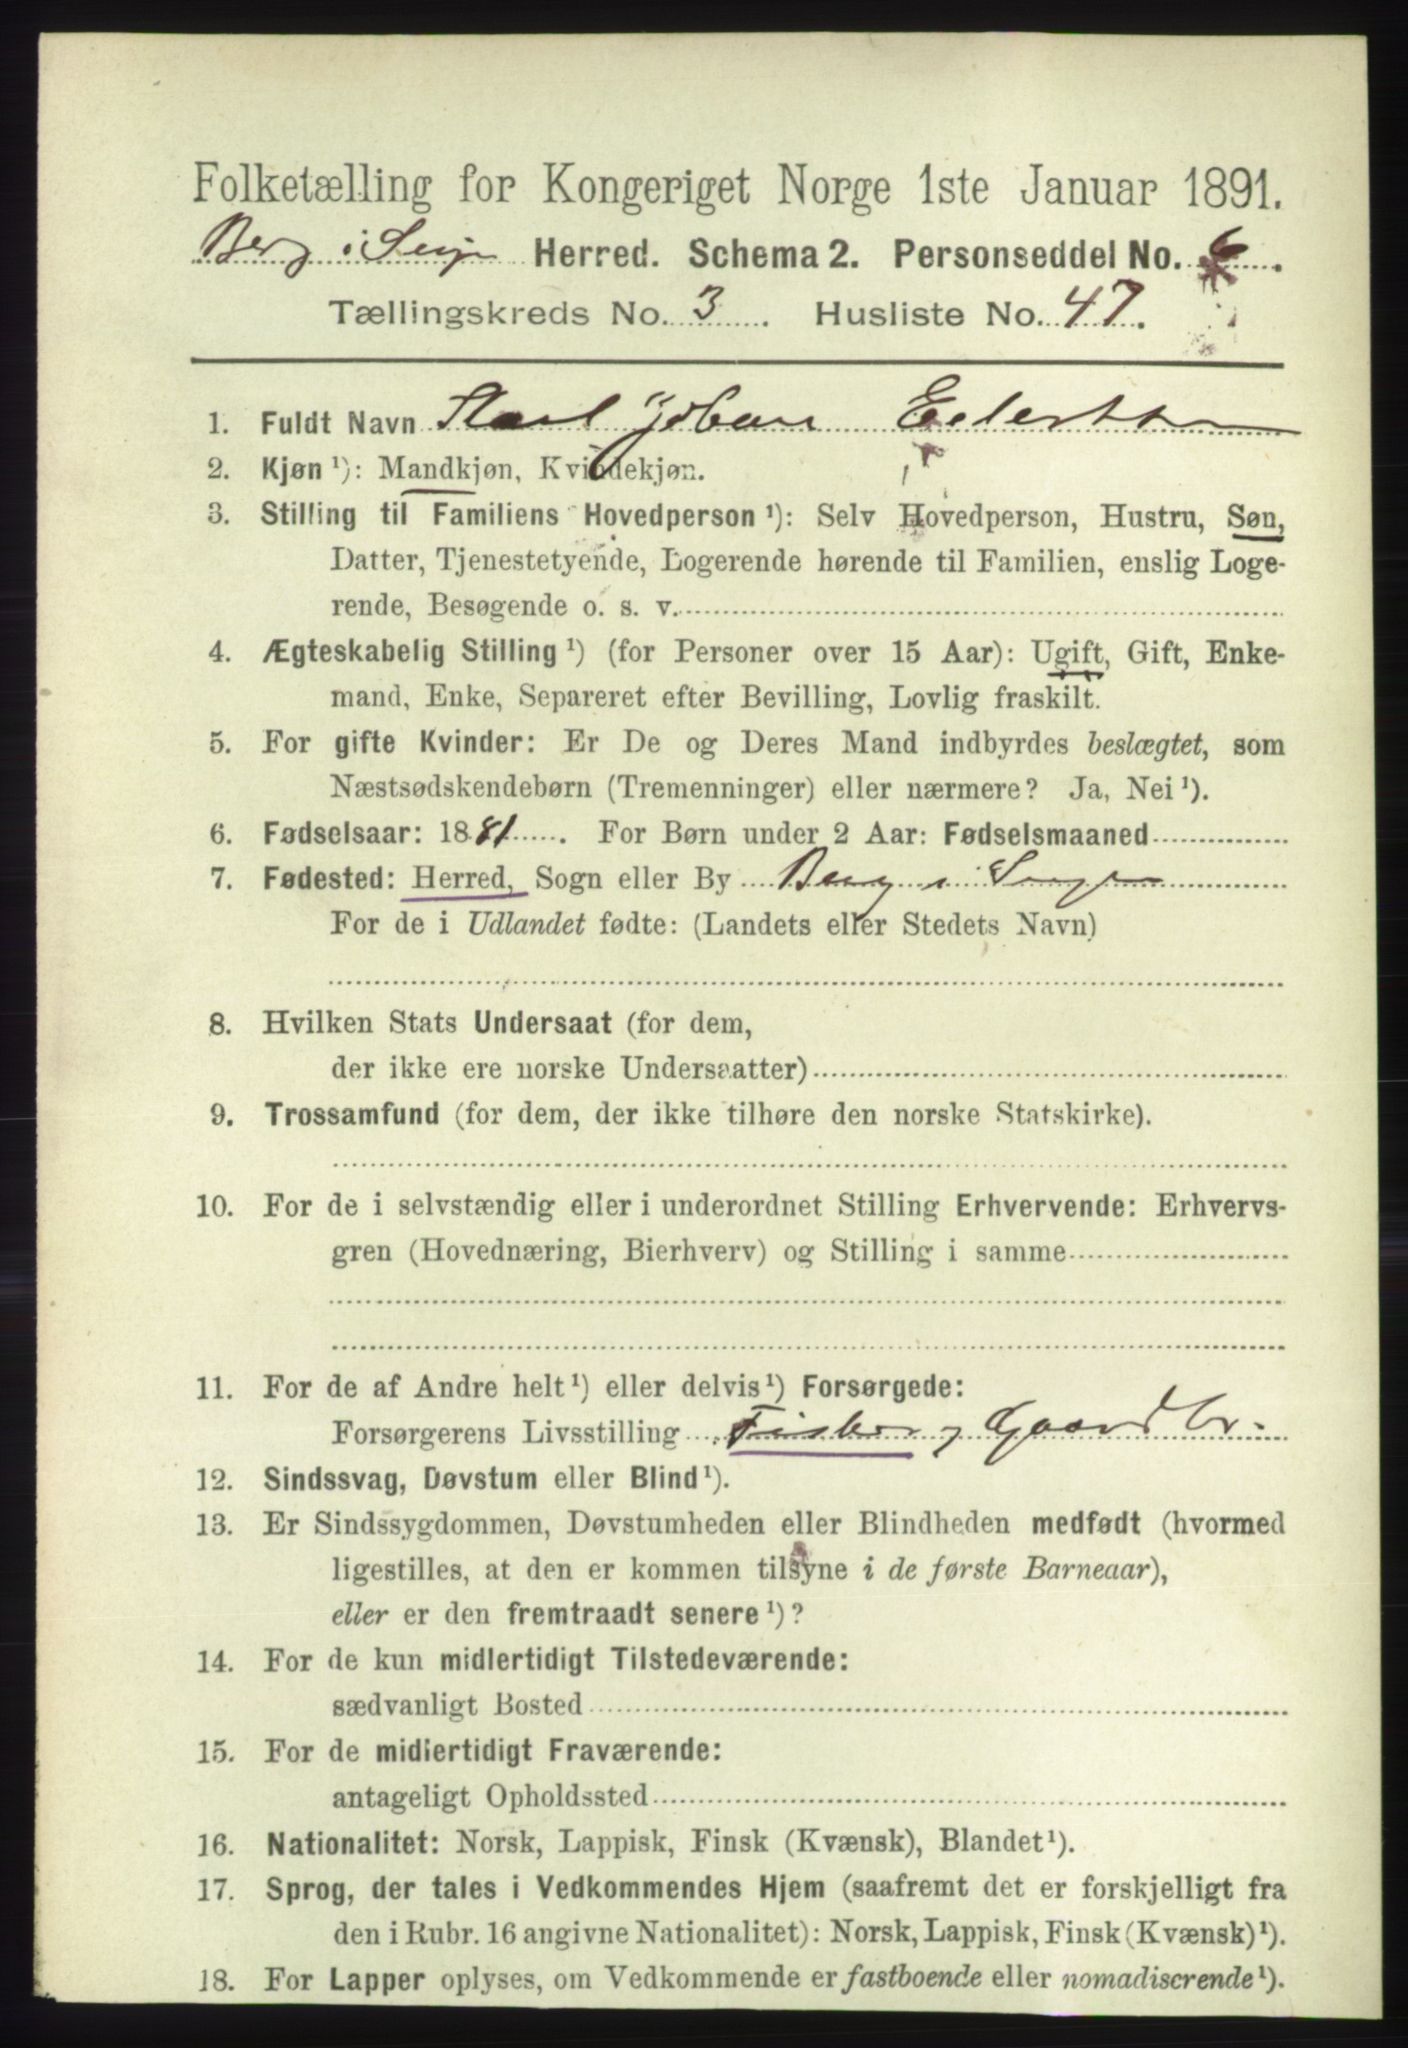 Folketælling for Kongeriget Norge 1ste Januar 1891.
Berg i Senjen Herred. Schema 2. Personseddel No. 6.
Tællingskreds No. 3. Husliste No. 47.
1. Fuldt Navn Karl Johan
2. Kjøn ¹): Mandkjøn, Kvindekjøn.
3. Stilling til Familiens Hovedperson ¹): Selv Hovedperson, Hustru, Søn,
Datter, Tjenestetyende, Logerende hørende til Familien, enslig Loge-
rende, Besøgende o. s. v.
4. Ægteskabelig Stilling ¹) (for Personer over 15 Aar): Ugift, Gift, Enke-
mand, Enke, Separeret efter Bevilling, Lovlig fraskilt.
5. For gifte Kvinder: Er De og Deres Mand indbyrdes beslægtet, som
Næstsødskendebørn (Tremenninger) eller nærmere? Ja, Nei ¹).
6. Fødselsaar: 1881. For Børn under 2 Aar: Fødselsmaaned
7. Fødested: Herred, Sogn eller By Berg i Senjen
For de i Udlandet fødte: (Landets eller Stedets Navn)
8. Hvilken Stats Undersaat (for dem,
der ikke ere norske Undersaatter)
9. Trossamfund (for dem, der ikke tilhøre den norske Statskirke).
10. For de i selvstændig eller i underordnet Stilling Erhvervende: Erhvervs-
gren (Hovednæring, Bierhverv) og Stilling i samme
11. For de af Andre helt ¹) eller delvis ¹) Forsørgede:
Forsørgerens Livsstilling Fisker og Gaardbr.
12. Sindssvag, Døvstum eller Blind ¹).
13. Er Sindssygdommen, Døvstumheden eller Blindheden medfødt (hvormed
ligestilles, at den er kommen tilsyne i de første Barneaar),
eller er den fremtraadt senere ¹)?
14. For de kun midlertidigt Tilstedeværende:
sædvanligt Bosted
15. For de midlertidigt Fraværende:
antageligt Opholdssted
16. Nationalitet: Norsk, Lappisk, Finsk (Kvænsk), Blandet ¹).
17. Sprog, der tales i Vedkommendes Hjem (saafremt det er forskjelligt fra
den i Rubr. 16 angivne Nationalitet): Norsk, Lappisk, Finsk (Kvænsk) ¹).
18. For Lapper oplyses, om Vedkommende er fastboende eller nomadiserende ¹).